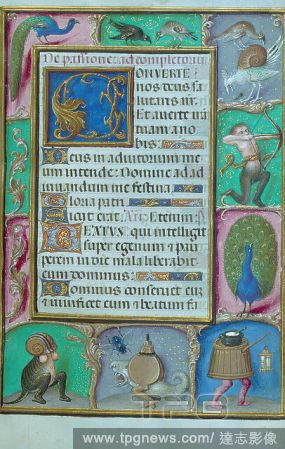 De passione ad completorium
CONVERTE
nos deus sa
lutaris nr.
Et averte i
ram tuam a no
bis.
Deus in adiutorium me
um intende: Domine ad ad
iuvandum me festina
Gloria patri
Sicut erat. Etenim.
BEATUS qui intelligit
super egenum et pau
perem in die mala liberabit
eum dominus:
Dominus conservet eum
et vivificet eum et beatum fa
TPG
www.tpgnews.com/ 達志影像